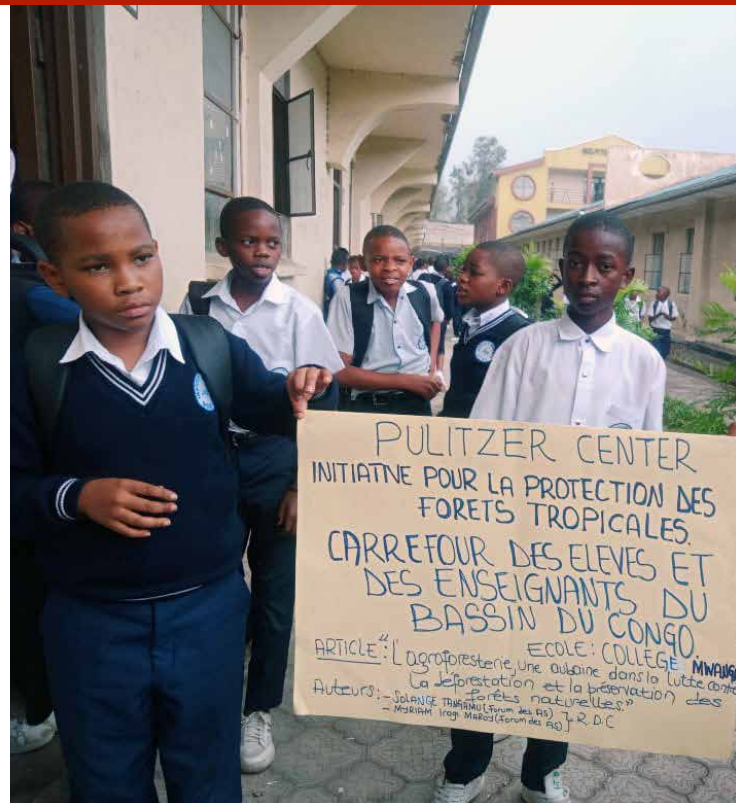 PULITZER CENTER
INITIATIVE POUR LA PROTECTION DES
FORETS TROPICALES.
CARREFOUR DES ELEVES ET
DES ENSEIGNANTS DU
BASSIN DU CONGO.
ECOLE: COLLEGE MWANGA
ARTICLE: "L'agroforesterie, une aubaine dans la lutte contre
la déforestation et la préservation des
forêts naturelles"
Auteurs: - SOLANGE (Forum des AS)
- MYRIAM Iragi MAROY (Forum des AS) } R.D.C